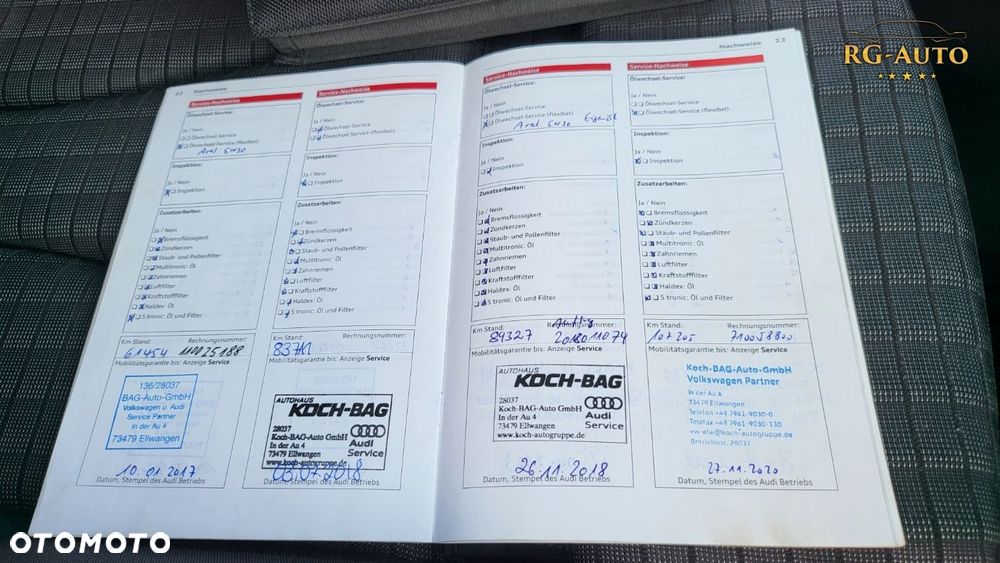 RG-AUTO
22 Nachweise
Service-Nachweise
Ölwechsel-Service:
Ja / Nein
Ölwechsel-Service
Ölwechsel-Service (flexibel)
Aral 5W30
Inspektion:
Ja / Nein
Inspektion
Zusatzarbeiten:
Ja / Nein
Bremsflüssigkeit
Zündkerzen
Staub- und Pollenfilter
Multitronic: Öl
Zahnriemen
Luftfilter
Kraftstofffilter
Haldex: Öl
S tronic: Öl und Filter
Km Stand: Rechnungsnummer:
61454 110025188
Mobilitätsgarantie bis: Anzeige Service
136/28037
BAG-Auto-GmbH
Volkswagen u. Audi
Service Partner
In der Au 4
73479 Ellwangen
10.01.2017
Datum, Stempel des Audi Betriebs
Service-Nachweise
Ölwechsel-Service:
Ja / Nein
Ölwechsel-Service
Ölwechsel-Service (flexibel)
Inspektion:
Ja / Nein
Inspektion
Zusatzarbeiten:
Ja / Nein
Bremsflüssigkeit
Zündkerzen
Staub- und Pollenfilter
Multitronic: Öl
Zahnriemen
Luftfilter
Kraftstofffilter
Haldex: Öl
S tronic: Öl und Filter
Km Stand: Rechnungsnummer:
Mobilitätsgarantie bis: Anzeige Service
AUTOHAUS
KOCH-BAG
28037
Koch-BAG-Auto GmbH
In der Au 4
73479 Ellwangen
www.koch-autogruppe.de
Audi
Service
03.07.2018
Datum, Stempel des Audi Betriebs
Nachweise 23
Service-Nachweise
Ölwechsel-Service:
Ja / Nein
Ölwechsel-Service
Ölwechsel-Service (flexibel)
Aral 5W30
Inspektion:
Ja / Nein
Inspektion
Zusatzarbeiten:
Ja / Nein
Bremsflüssigkeit
Zündkerzen
Staub- und Pollenfilter
Multitronic: Öl
Zahnriemen
Luftfilter
Kraftstofffilter
Haldex: Öl
S tronic: Öl und Filter
Km Stand: Rechnungsnummer:
89327 2018011074
Mobilitätsgarantie bis: Anzeige Service
AUTOHAUS
KOCH-BAG
28037
Koch-BAG-Auto GmbH
In der Au 4
73479 Ellwangen
www.koch-autogruppe.de
Audi
Service
26.11.2018
Datum, Stempel des Audi Betriebs
Service-Nachweise
Ölwechsel-Service:
Ja / Nein
Ölwechsel-Service
Ölwechsel-Service (flexibel)
Inspektion:
Ja / Nein
Inspektion
Zusatzarbeiten:
Ja / Nein
Bremsflüssigkeit
Zündkerzen
Staub- und Pollenfilter
Multitronic: Öl
Zahnriemen
Luftfilter
Kraftstofffilter
Haldex: Öl
S tronic: Öl und Filter
Km Stand: Rechnungsnummer:
107205 710058800
Mobilitätsgarantie bis: Anzeige Service
Koch-BAG-Auto-GmbH
Volkswagen Partner
In der Au 4
73479 Ellwangen
Telefon +49 7961-9030-0
Telefax +49 7961-9030-130
vw-elw@koch-autogruppe.de
Betriebsnr. 28037
27.11.2020
Datum, Stempel des Audi Betriebs
OTOMOTO